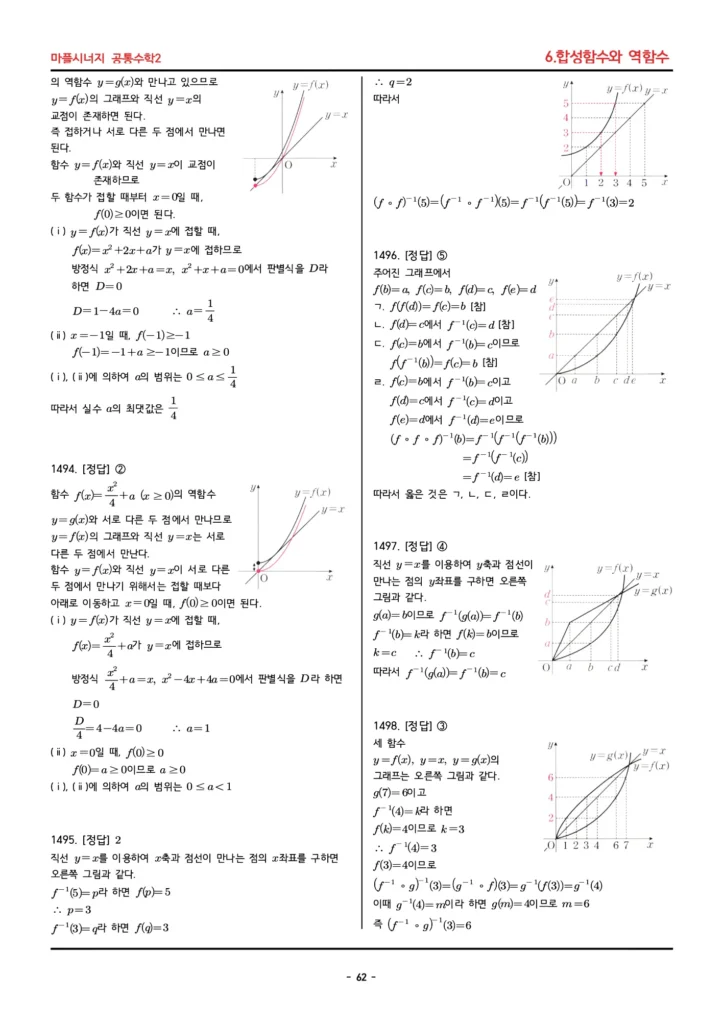 마플시너지 공통수학2
6.합성함수와 역함수
의 역함수 y=g(x)와 만나고 있으므로
y=f(x)의 그래프와 직선 y=x의
교점이 존재하면 된다.
즉 접하거나 서로 다른 두 점에서 만나면
된다.
함수 y=f(x)와 직선 y=x이 교점이
존재하므로
두 함수가 접할 때부터 x=0일 때,
f(0)≥0이면 된다.
y
y=f(x)
y=x
O
x
(ⅰ) y=f(x)가 직선 y=x에 접할 때,
f(x)=x²+2x+a가 y=x에 접하므로
방정식 x²+2x+a=x, x²+x+a=0에서 판별식을 D라
하면 D=0
D=1-4a=0 ∴ a=1/4
(ⅱ) x=-1일 때, f(-1)≥-1
f(-1)=-1+a≥-1이므로 a≥0
(ⅰ), (ⅱ)에 의하여 a의 범위는 0≤a≤1/4
따라서 실수 a의 최댓값은 1/4
1494. [정답] ②
함수 f(x)=x²/4+a (x≥0)의 역함수
y=g(x)와 서로 다른 두 점에서 만나므로
y=f(x)의 그래프와 직선 y=x는 서로
다른 두 점에서 만난다.
함수 y=f(x)와 직선 y=x이 서로 다른
두 점에서 만나기 위해서는 접할 때보다
아래로 이동하고 x=0일 때, f(0)≥0이면 된다.
y
y=f(x)
y=x
O
x
(ⅰ) y=f(x)가 직선 y=x에 접할 때,
f(x)=x²/4+a가 y=x에 접하므로
방정식 x²/4+a=x, x²-4x+4a=0에서 판별식을 D라 하면
D=0
D/4=4-4a=0 ∴ a=1
(ⅱ) x=0일 때, f(0)≥0
f(0)=a≥0이므로 a≥0
(ⅰ), (ⅱ)에 의하여 a의 범위는 0≤a<1
1495. [정답] 2
직선 y=x를 이용하여 x축과 점선이 만나는 점의 x좌표를 구하면
오른쪽 그림과 같다.
f⁻¹(5)=p라 하면 f(p)=5
∴ p=3
f⁻¹(3)=q라 하면 f(q)=3
∴ q=2
따라서
y
y=f(x)
y=x
5
4
3
2
O 1 2 3 4 5 x
(f∘f)⁻¹(5)=(f⁻¹∘f⁻¹)(5)=f⁻¹(f⁻¹(5))=f⁻¹(3)=2
1496. [정답] ⑤
주어진 그래프에서
f(b)=a, f(c)=b, f(d)=c, f(e)=d
ㄱ. f(f(d))=f(c)=b [참]
ㄴ. f(d)=c에서 f⁻¹(c)=d [참]
ㄷ. f(c)=b에서 f⁻¹(b)=c이므로
f(f⁻¹(b))=f(c)=b [참]
ㄹ. f(c)=b에서 f⁻¹(b)=c이고
f(d)=c에서 f⁻¹(c)=d이고
f(e)=d에서 f⁻¹(d)=e이므로
(f∘f∘f)⁻¹(b)=f⁻¹(f⁻¹(f⁻¹(b)))
=f⁻¹(f⁻¹(c))
=f⁻¹(d)=e [참]
따라서 옳은 것은 ㄱ, ㄴ, ㄷ, ㄹ이다.
y
y=f(x)
y=x
e
d
c
b
a
O a b c d e x
1497. [정답] ④
직선 y=x를 이용하여 y축과 점선이
만나는 점의 y좌표를 구하면 오른쪽
그림과 같다.
g(a)=b이므로 f⁻¹(g(a))=f⁻¹(b)
f⁻¹(b)=k라 하면 f(k)=b이므로
k=c ∴ f⁻¹(b)=c
따라서 f⁻¹(g(a))=f⁻¹(b)=c
y
y=f(x)
y=x
y=g(x)
d
c
b
a
O a b c d x
1498. [정답] ③
세 함수
y=f(x), y=x, y=g(x)의
그래프는 오른쪽 그림과 같다.
g(7)=6이고
f⁻¹(4)=k라 하면
f(k)=4이므로 k=3
∴ f⁻¹(4)=3
f(3)=4이므로
y
y=g(x)
y=x
y=f(x)
6
4
2
O 1 2 3 4 6 7 x
(f⁻¹∘g)⁻¹(3)=(g⁻¹∘f)(3)=g⁻¹(f(3))=g⁻¹(4)
이때 g⁻¹(4)=m이라 하면 g(m)=4이므로 m=6
즉 (f⁻¹∘g)⁻¹(3)=6
- 62 -